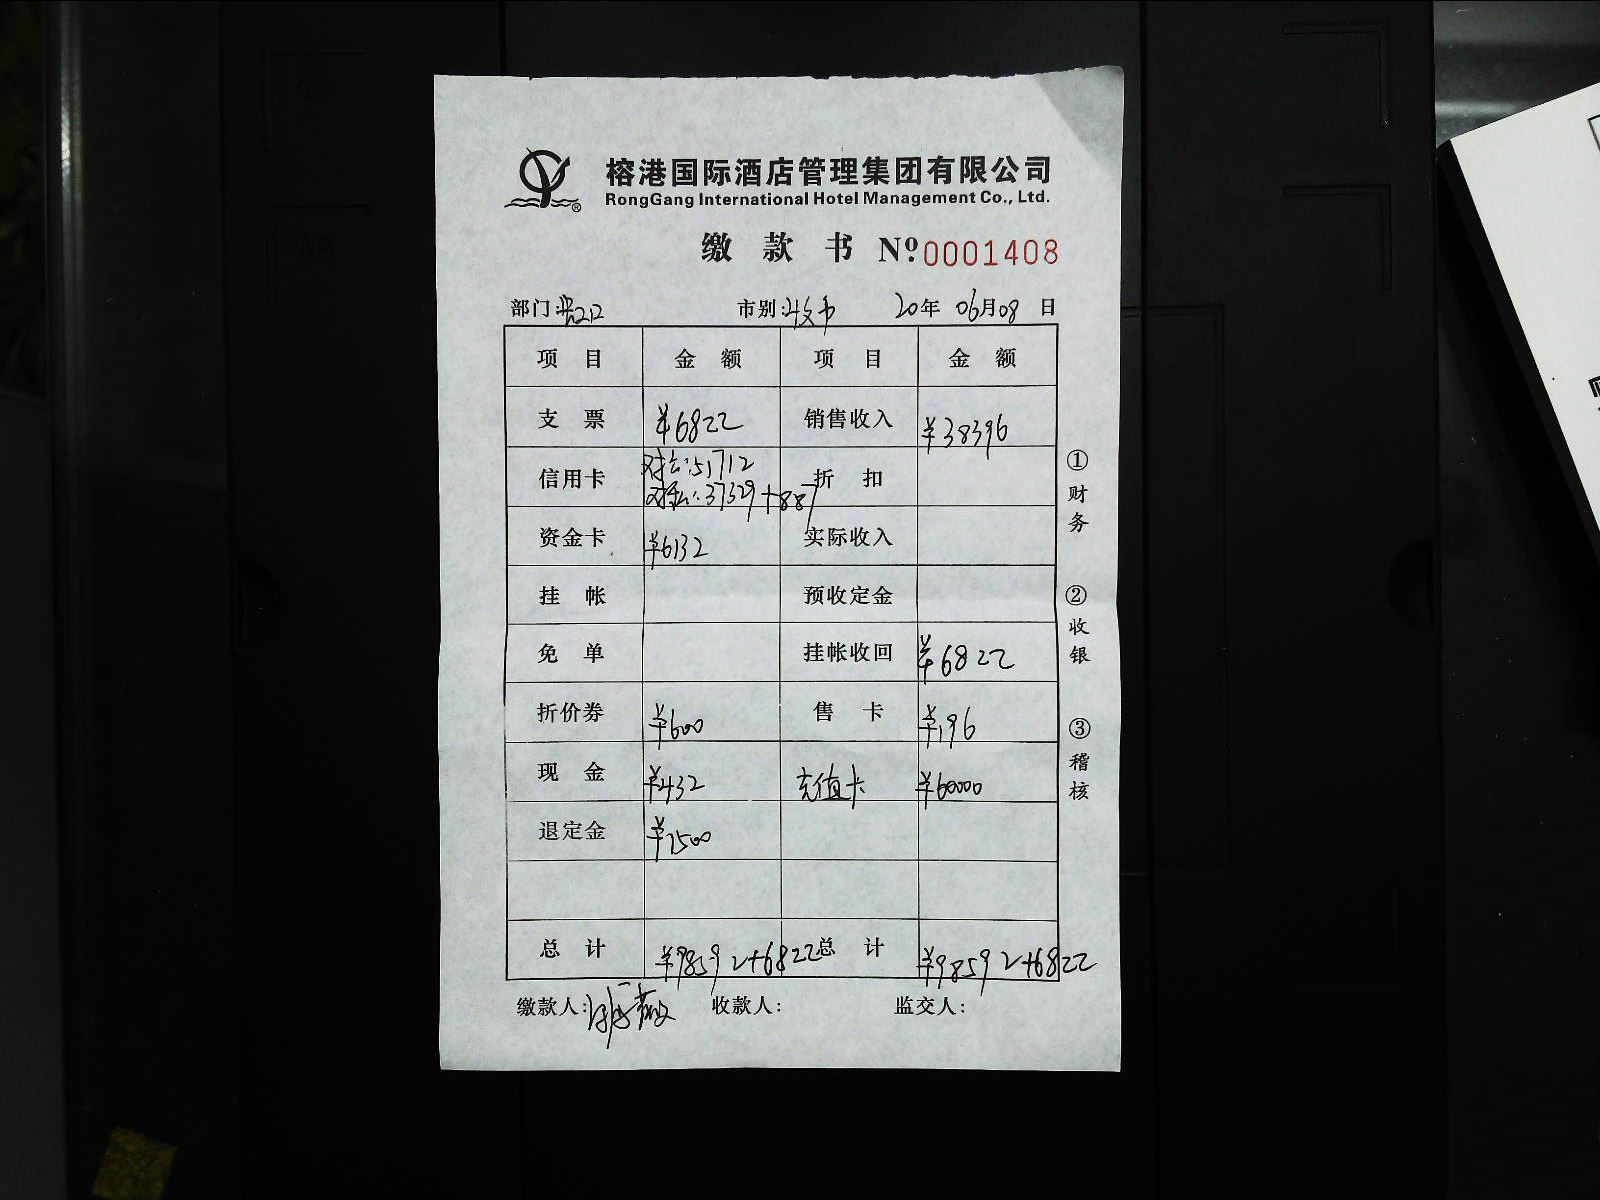 榕港国际酒店管理集团有限公司
RongGang International Hotel Management Co., Ltd.
缴款书 Nº:0001408
部门: 市别: 20年 06月08日
项目 金额 项目 金额
支票 ¥6822 销售收入 ¥38396
信用卡 51712 折扣
37329+887
资金卡 ¥6132 实际收入
挂帐 预收定金
免单 挂帐收回 ¥6822
折价券 ¥600 售卡 ¥196
现金 ¥432 充值卡 ¥60000
退定金 ¥2500
总计 ¥98592+6822 总计 ¥98592+6822
缴款人: 收款人: 监交人:
①财务
②收银
③稽核